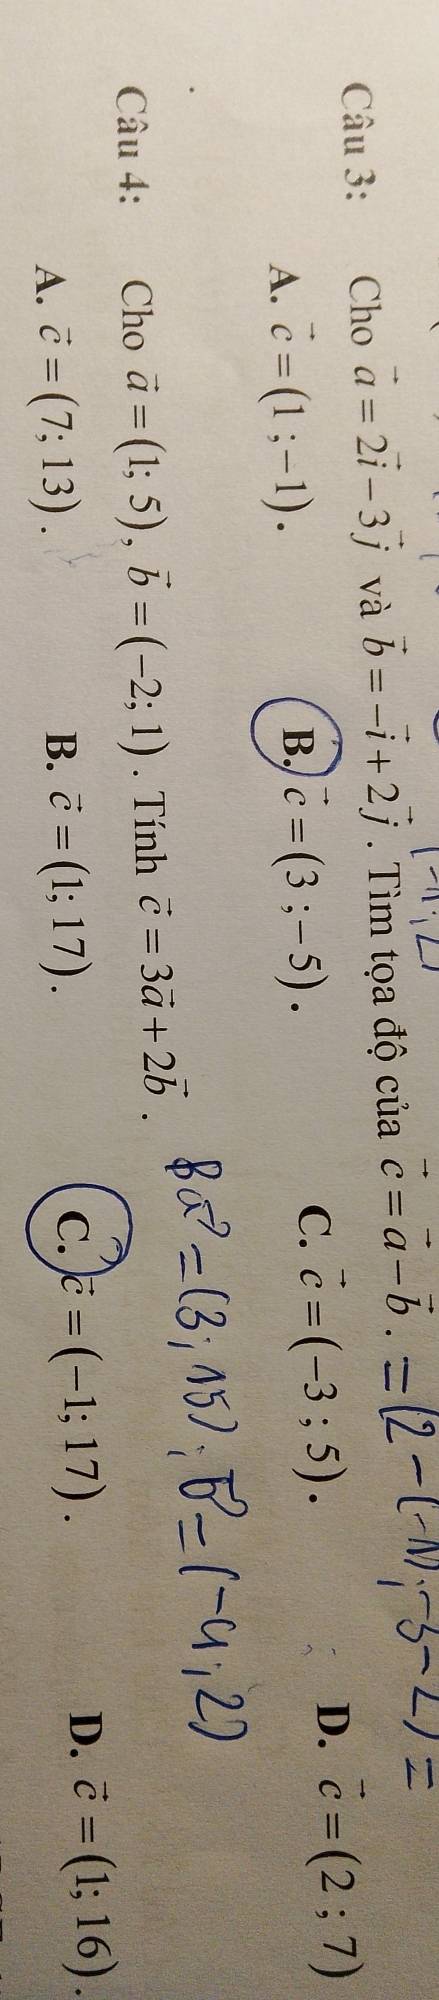 (-1; 2)
Câu 3: Cho $\vec{a}=2\vec{i}-3\vec{j}$ và $\vec{b}=-\vec{i}+2\vec{j}$. Tìm tọa độ của $\vec{c}=\vec{a}-\vec{b}$. = (2-(-1); -3-2) =
A. $\vec{c}=(1;-1)$. B. $\vec{c}=(3;-5)$. C. $\vec{c}=(-3;5)$. D. $\vec{c}=(2;7)$
$3\vec{a}=(3;15)$; $\vec{b}=(-4;2)$
Câu 4: Cho $\vec{a}=(1;5)$, $\vec{b}=(-2;1)$. Tính $\vec{c}=3\vec{a}+2\vec{b}$.
A. $\vec{c}=(7;13)$. B. $\vec{c}=(1;17)$. C. $\vec{c}=(-1;17)$. D. $\vec{c}=(1;16)$.